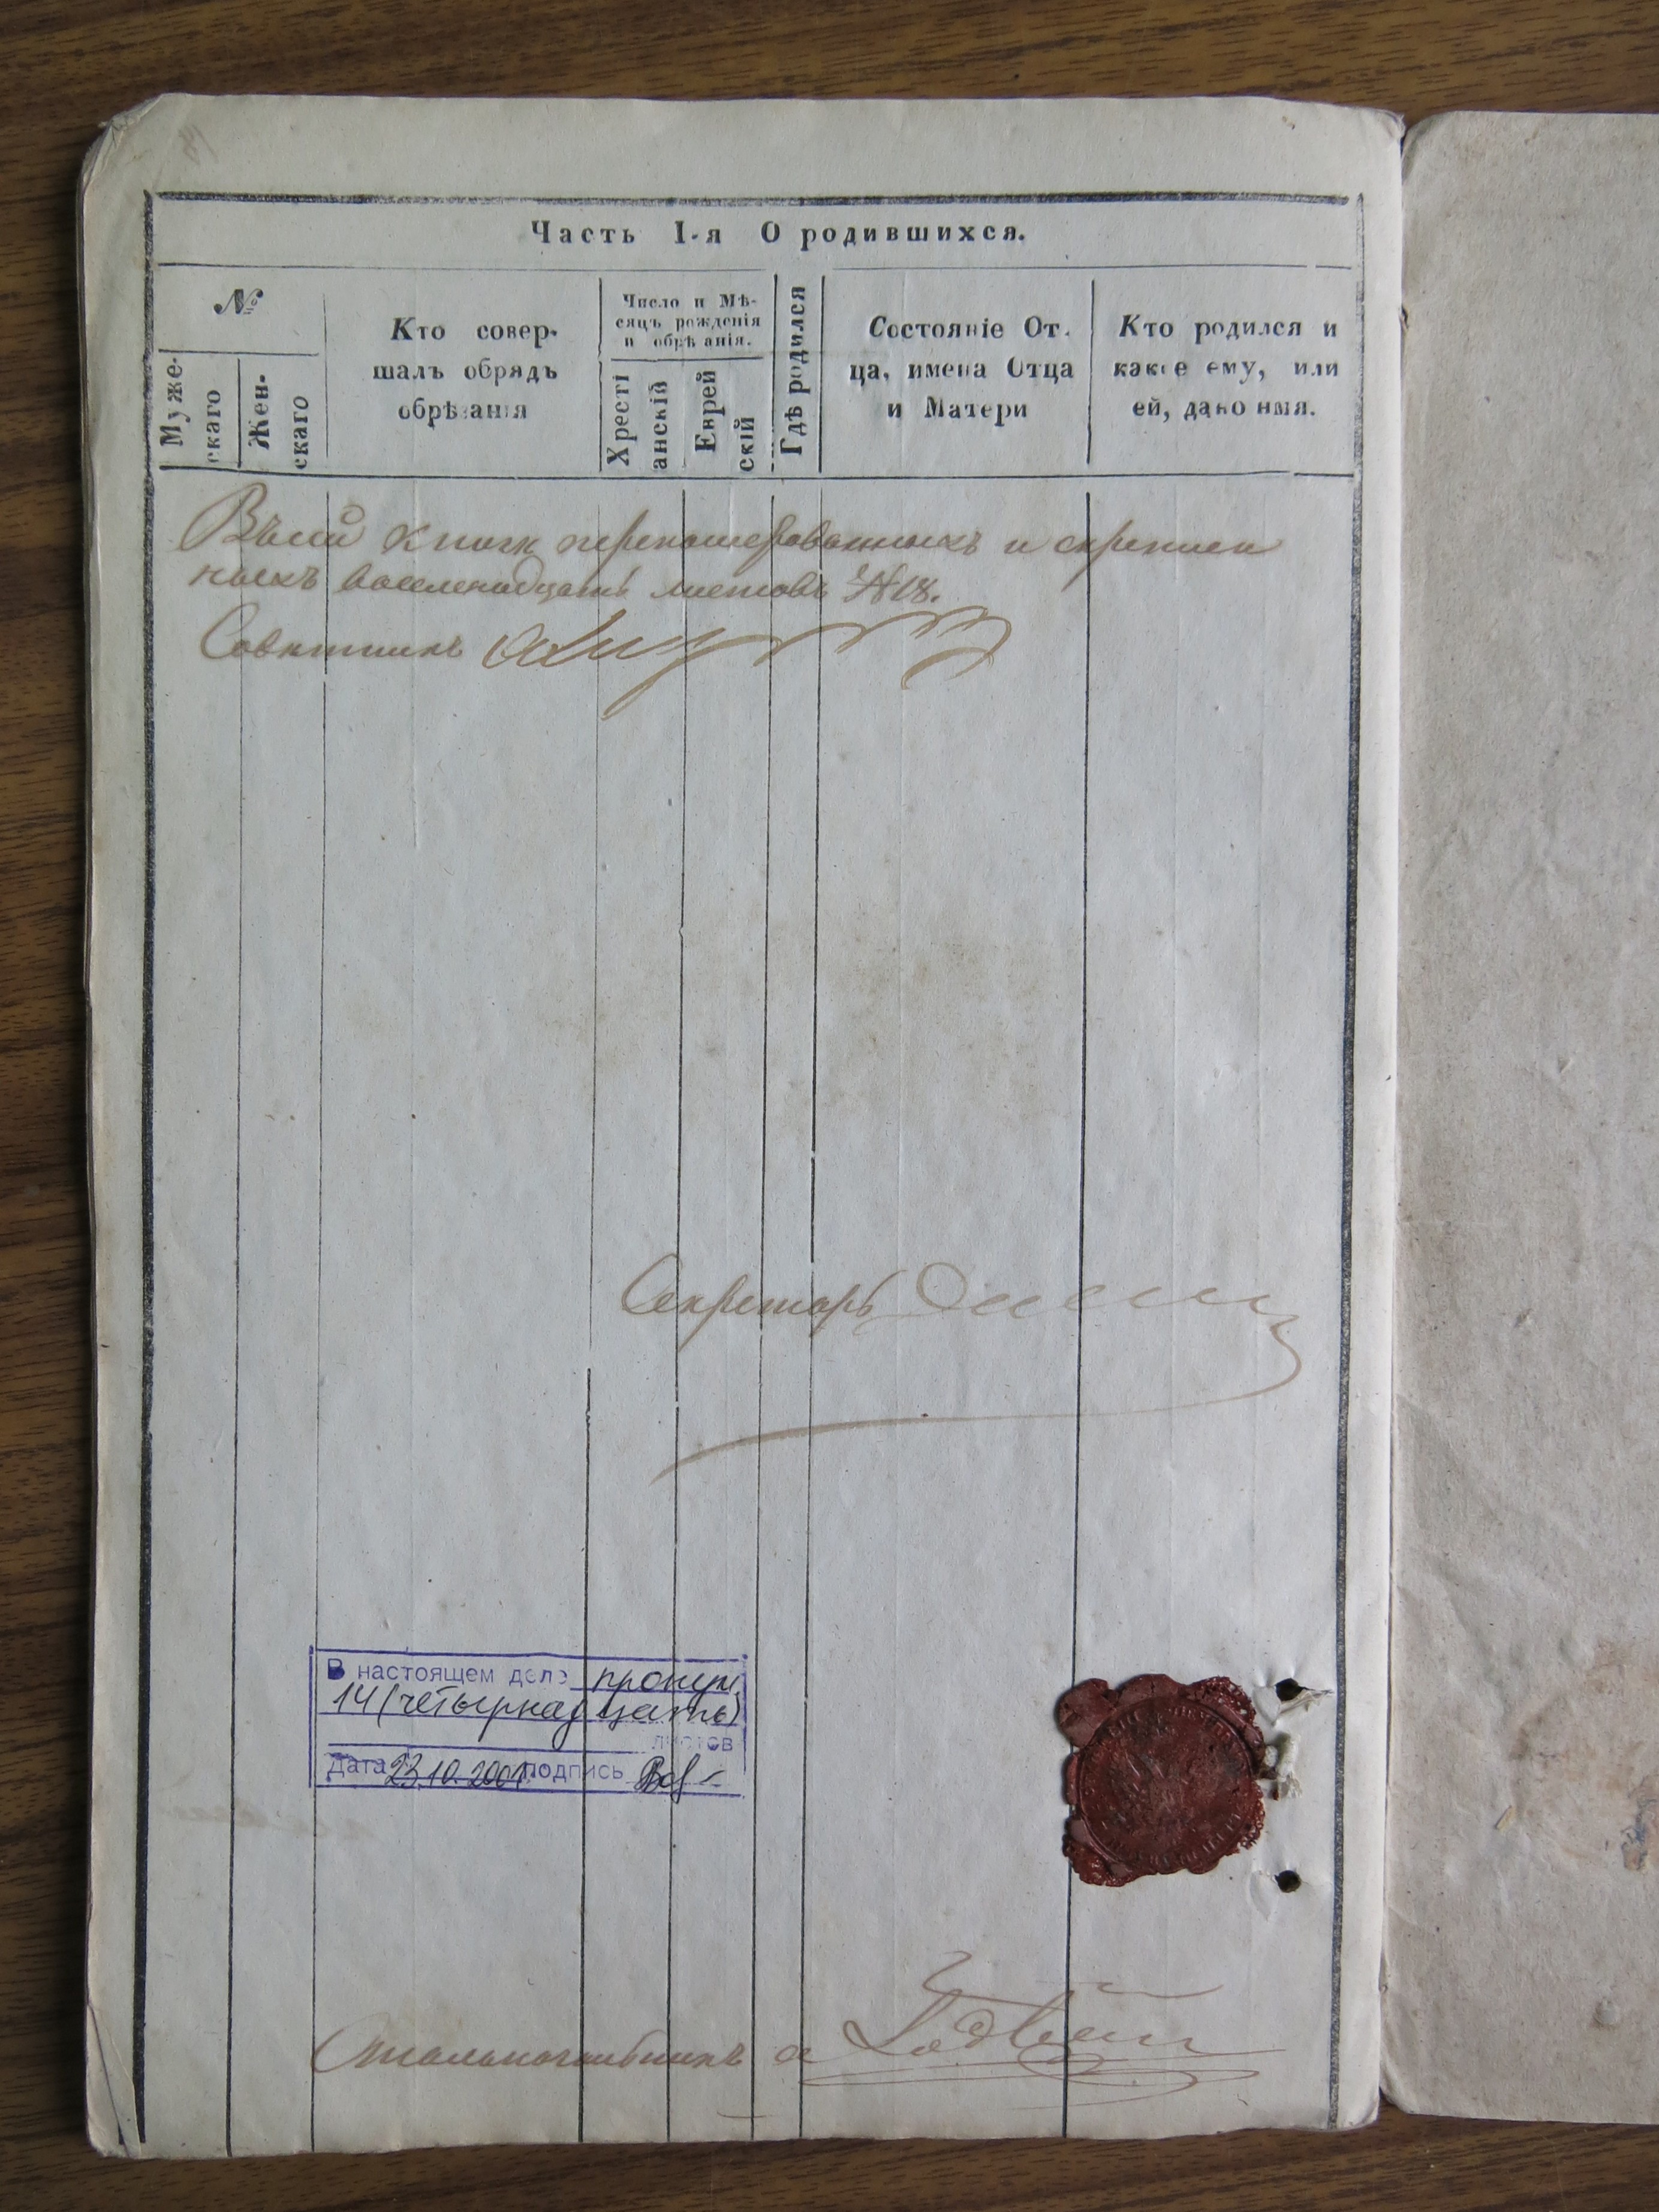 Часть I-я О родившихся.
№
Муже-
скаго
Жен-
скаго
Кто совер-
шалъ обрядъ
обрѣзанія
Число и Мѣ-
сяцъ рожденія
и обрѣзанія.
Хрестi
анскій
Еврей
скій
Гдѣ родился
Состояніе От-
ца, имена Отца
и Матери
Кто родился и
какое ему, или
ей, дано имя.
Въ сей книгѣ перенумерованныхъ и скреплен
ныхъ восемнадцать листовъ №18.
Совѣтникъ
Секретарь
В настоящем деле пронум.
14 (четырнадцать)
листов
Дата 23.10.2001 подпись
Столоначальникъ